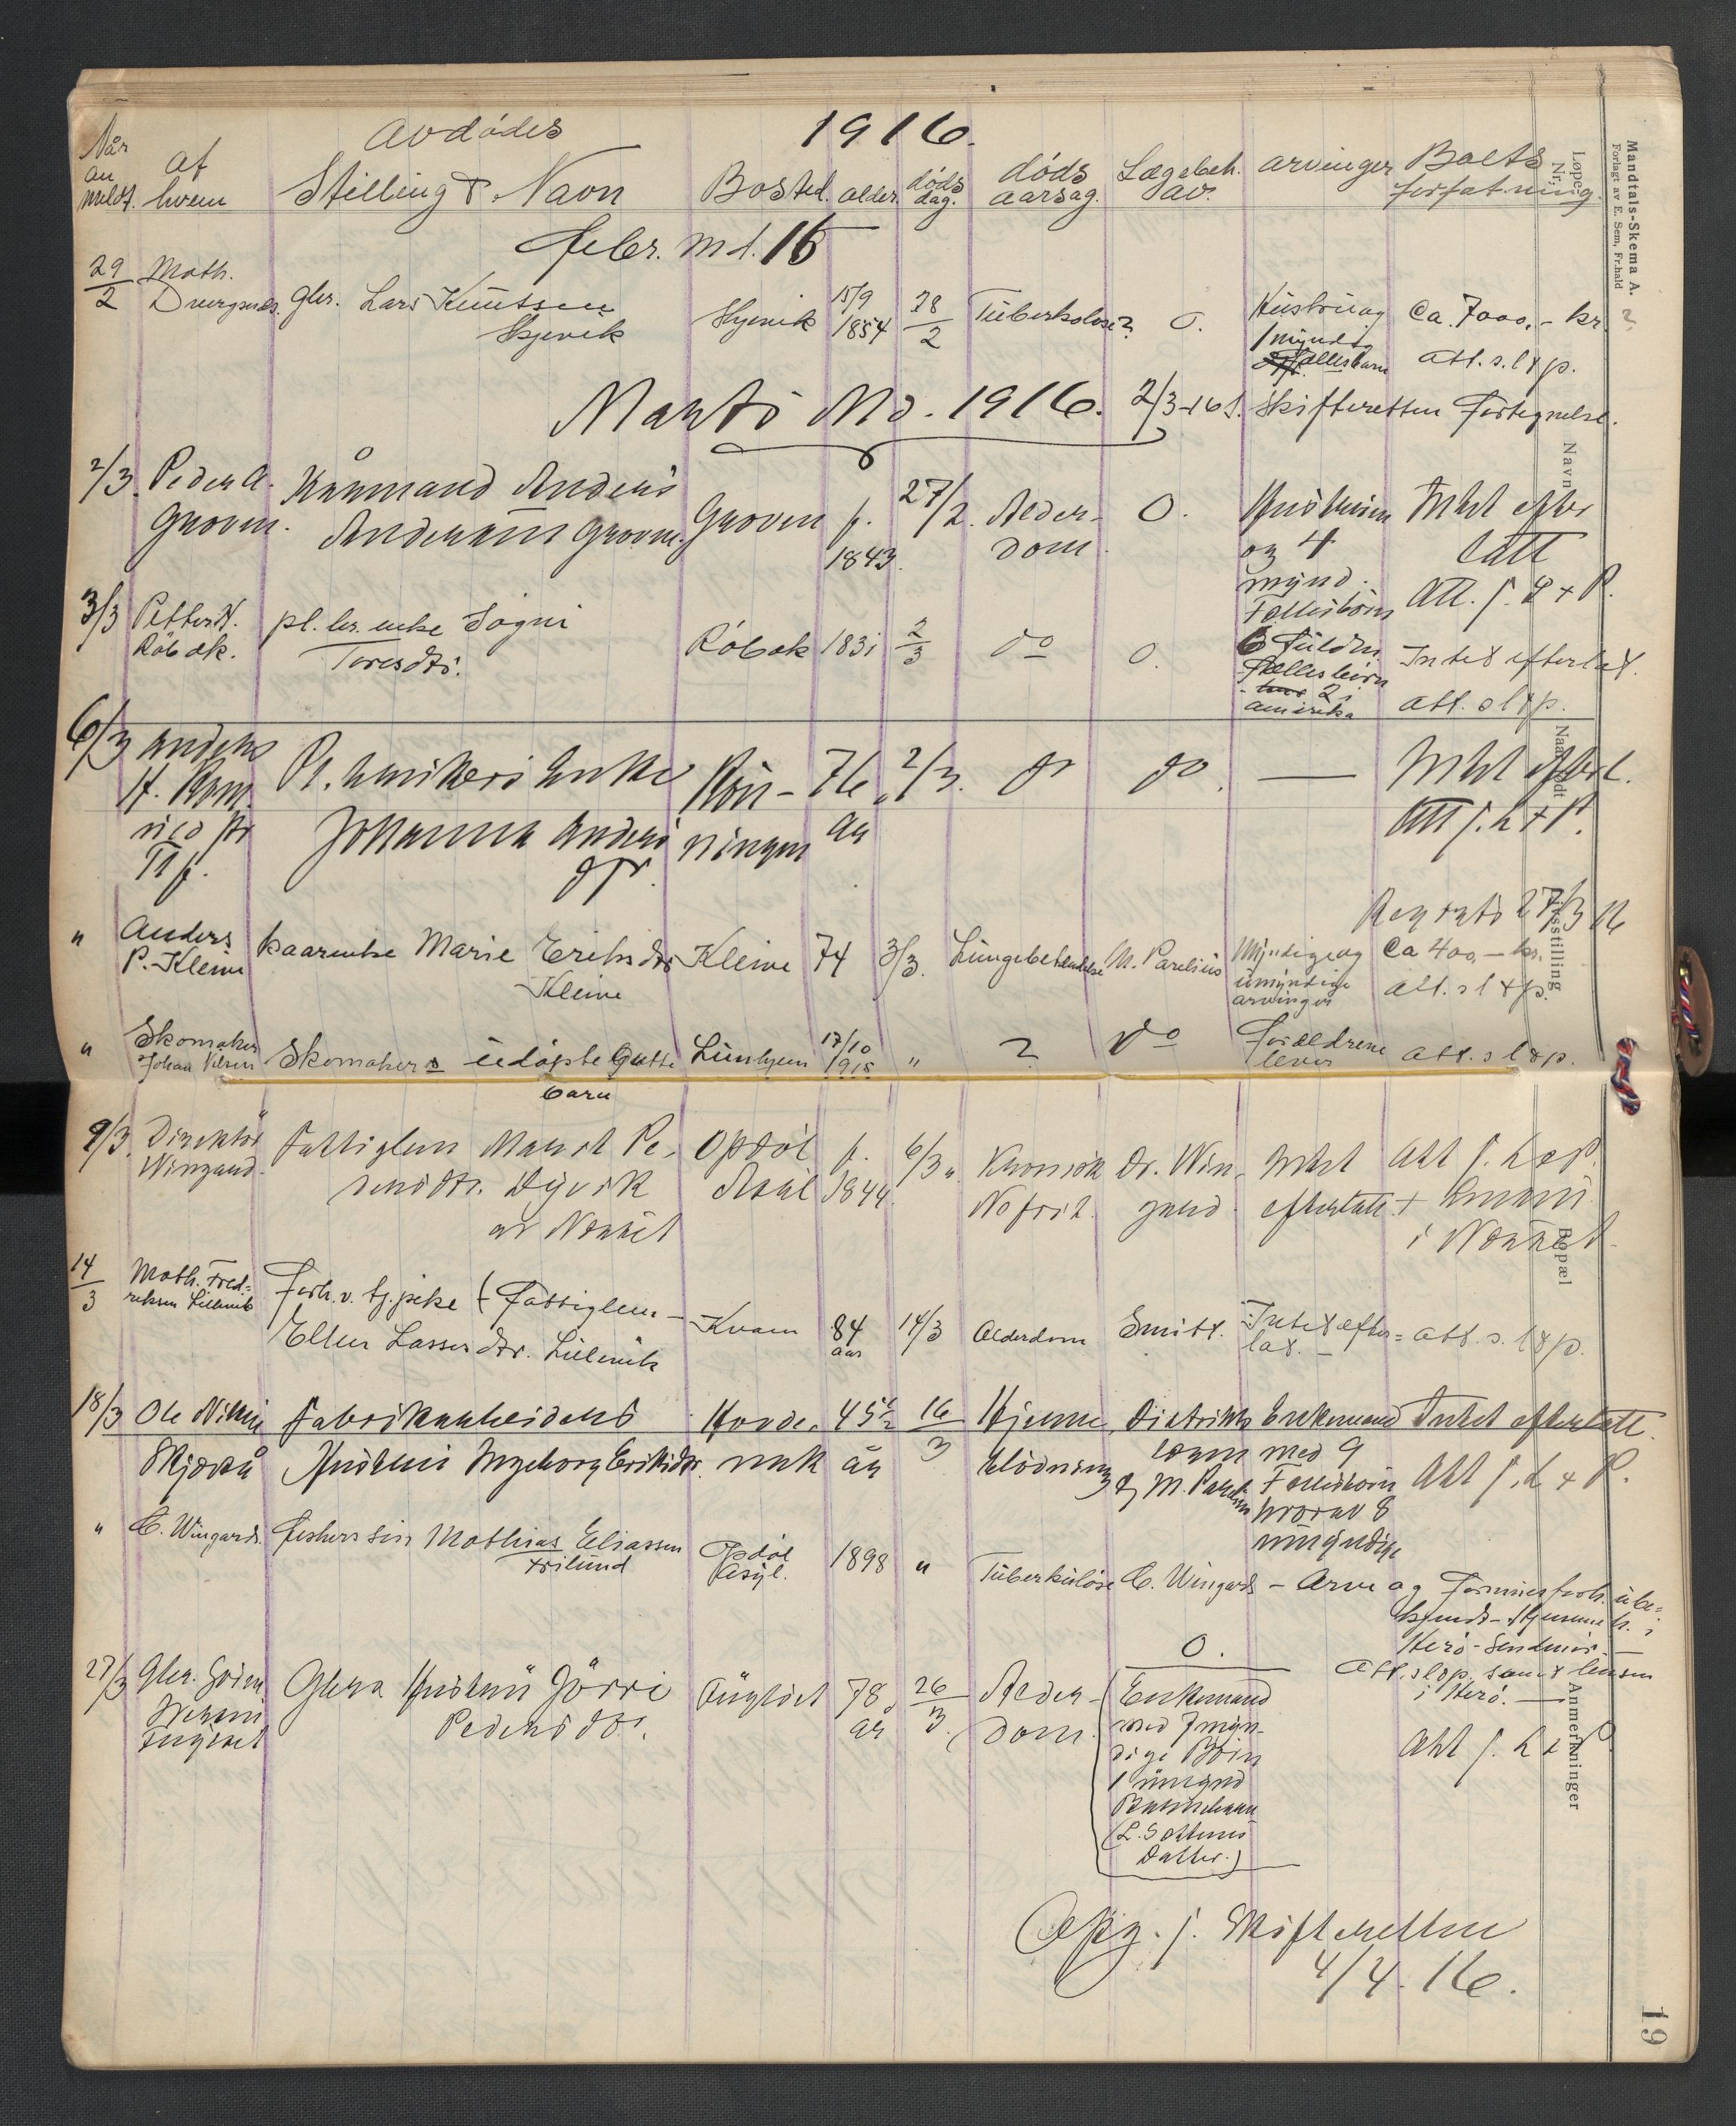 Når anmeldt. af hvem Avdødes Stilling & Navn 1916. Bosted. alder. døds dag. døds aarsag. Lægebeh. av. arvinger Boets forfatning.
Febr. Md. 16
29/2 Math. gbr. Lars Knutsen Skjevik Skjevik 15/9 1854 28/2 Tuberkolose? O. Hustru og 1 myndig Fællesbarn Ca. 7000,- kr. Att. s. l & p.
Marts Md. 1916. 2/3-16 s. Skifteretten Fortegnelse.
2/3 Peder A. Groven. Kårmand Anders Andersen Groven. Groven f. 1843. 27/2. Alderdom. O. Hustruen og 4 mynd. Fællesbörn Intet efterlatt Att. s. L & P.
3/3 Petter N. Röbæk. pl.br. enke Sogni Toresdtr. Röbæk 1831 2/3 do O. 6 Fuldm. Fællesbörn - 2 i Amerika Intet efterlat. Att. s l & p.
6/3 Anders H. Pl. bruker enke Johanna Anders dtr. Rönningen 76 år 2/3. do do. — Intet efterl. Att s. L & P.
" Anders P. Kleive kaarenke Marie Eriksdtr Kleive Kleive 74 3/3. Lungebetendelse M. Parelius Myndige og umyndige arvinger Regstr. 27/3 16 Ca 400,- kr. Att. s l & p.
" Skomaker Johan Nilsen Skomakers udöpte Guttebarn 17/10 1915 " ? do Forældrene lever Att. s l & p.
9/3. Direktör Wingaard. Fattiglem Marit Pedersdtr. Dijvik av Nesset Opdöl Asÿl f. 1844. 6/3 " Kronisk Nefrit. Dr. Wingaard. Intet efterlatt Att s. L & P. i Nesset.
14/3 Math. Fredriksen Lillevik Forh. v. tj. pike (Fattiglem - Ellen Lassesdtr. Lillevik Kvam 84 aar 14/3 Alderdom Smith. Intet efterlat. - Att. s. l & p.
18/3 Ole Nilsen Skjorå Fabrikarbeiders Hustru Ingeborg Eriksdtr. 45½ år 16/3 Hjerneblödning Distriktslægen M. Parelius Enkemand med 9 Fællesbörn hvorav 8 umyndige Intet efterlatt. Att s. L & P.
" C. Wingaard. fiskers sön Mathias Eliassen Opdöl Asÿl. 1898 " Tuberkulöse C. Wingaard - Arve og Formuesforh. ubekjendt - Hjemmeh. i Herö - Söndmör. — Att. s l & p. samt lensm i Herö. —
27/3 Gbr. Gbra Hustru Jörri Pedersdtr. 78 år 26/3. Alderdom. O. Enkemand med 7 myndige Börn 1 umynd Barnebarn (L. Datter.) Att s. L & P
Opg. s. Skifteretten
4/4. 16.
Mandtals-Skema A.
Forlagt av E. Sem, Fr.hald
Løpe-Nr.
Navn
Naar født
Livsstilling
Bopæl
Anmerkninger
19